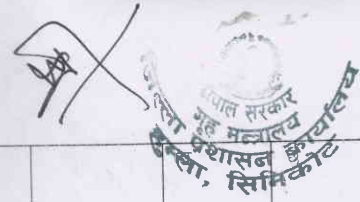 नेपाल सरकार
गृह मन्त्रालय
जिल्ला प्रशासन कार्यालय
हुम्ला, सिमिकोट